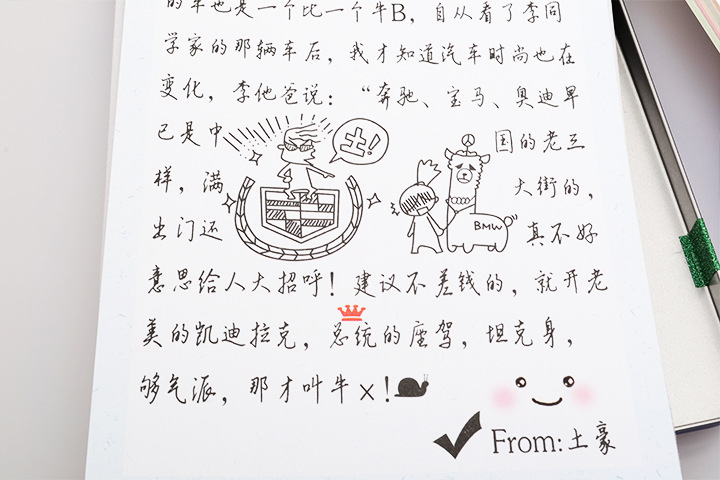 的车也是一个比一个牛B，自从看了李同
学家的那辆车后，我才知道汽车时尚也在
变化，李他爸说：“奔驰、宝马、奥迪早
已是中 国的老三
土！
样，满 大街的，
BMW
出门还 真不好
意思给人大招呼！建议不差钱的，就开老
美的凯迪拉克，总统的座驾，坦克身，
够气派，那才叫牛×！
From:土豪